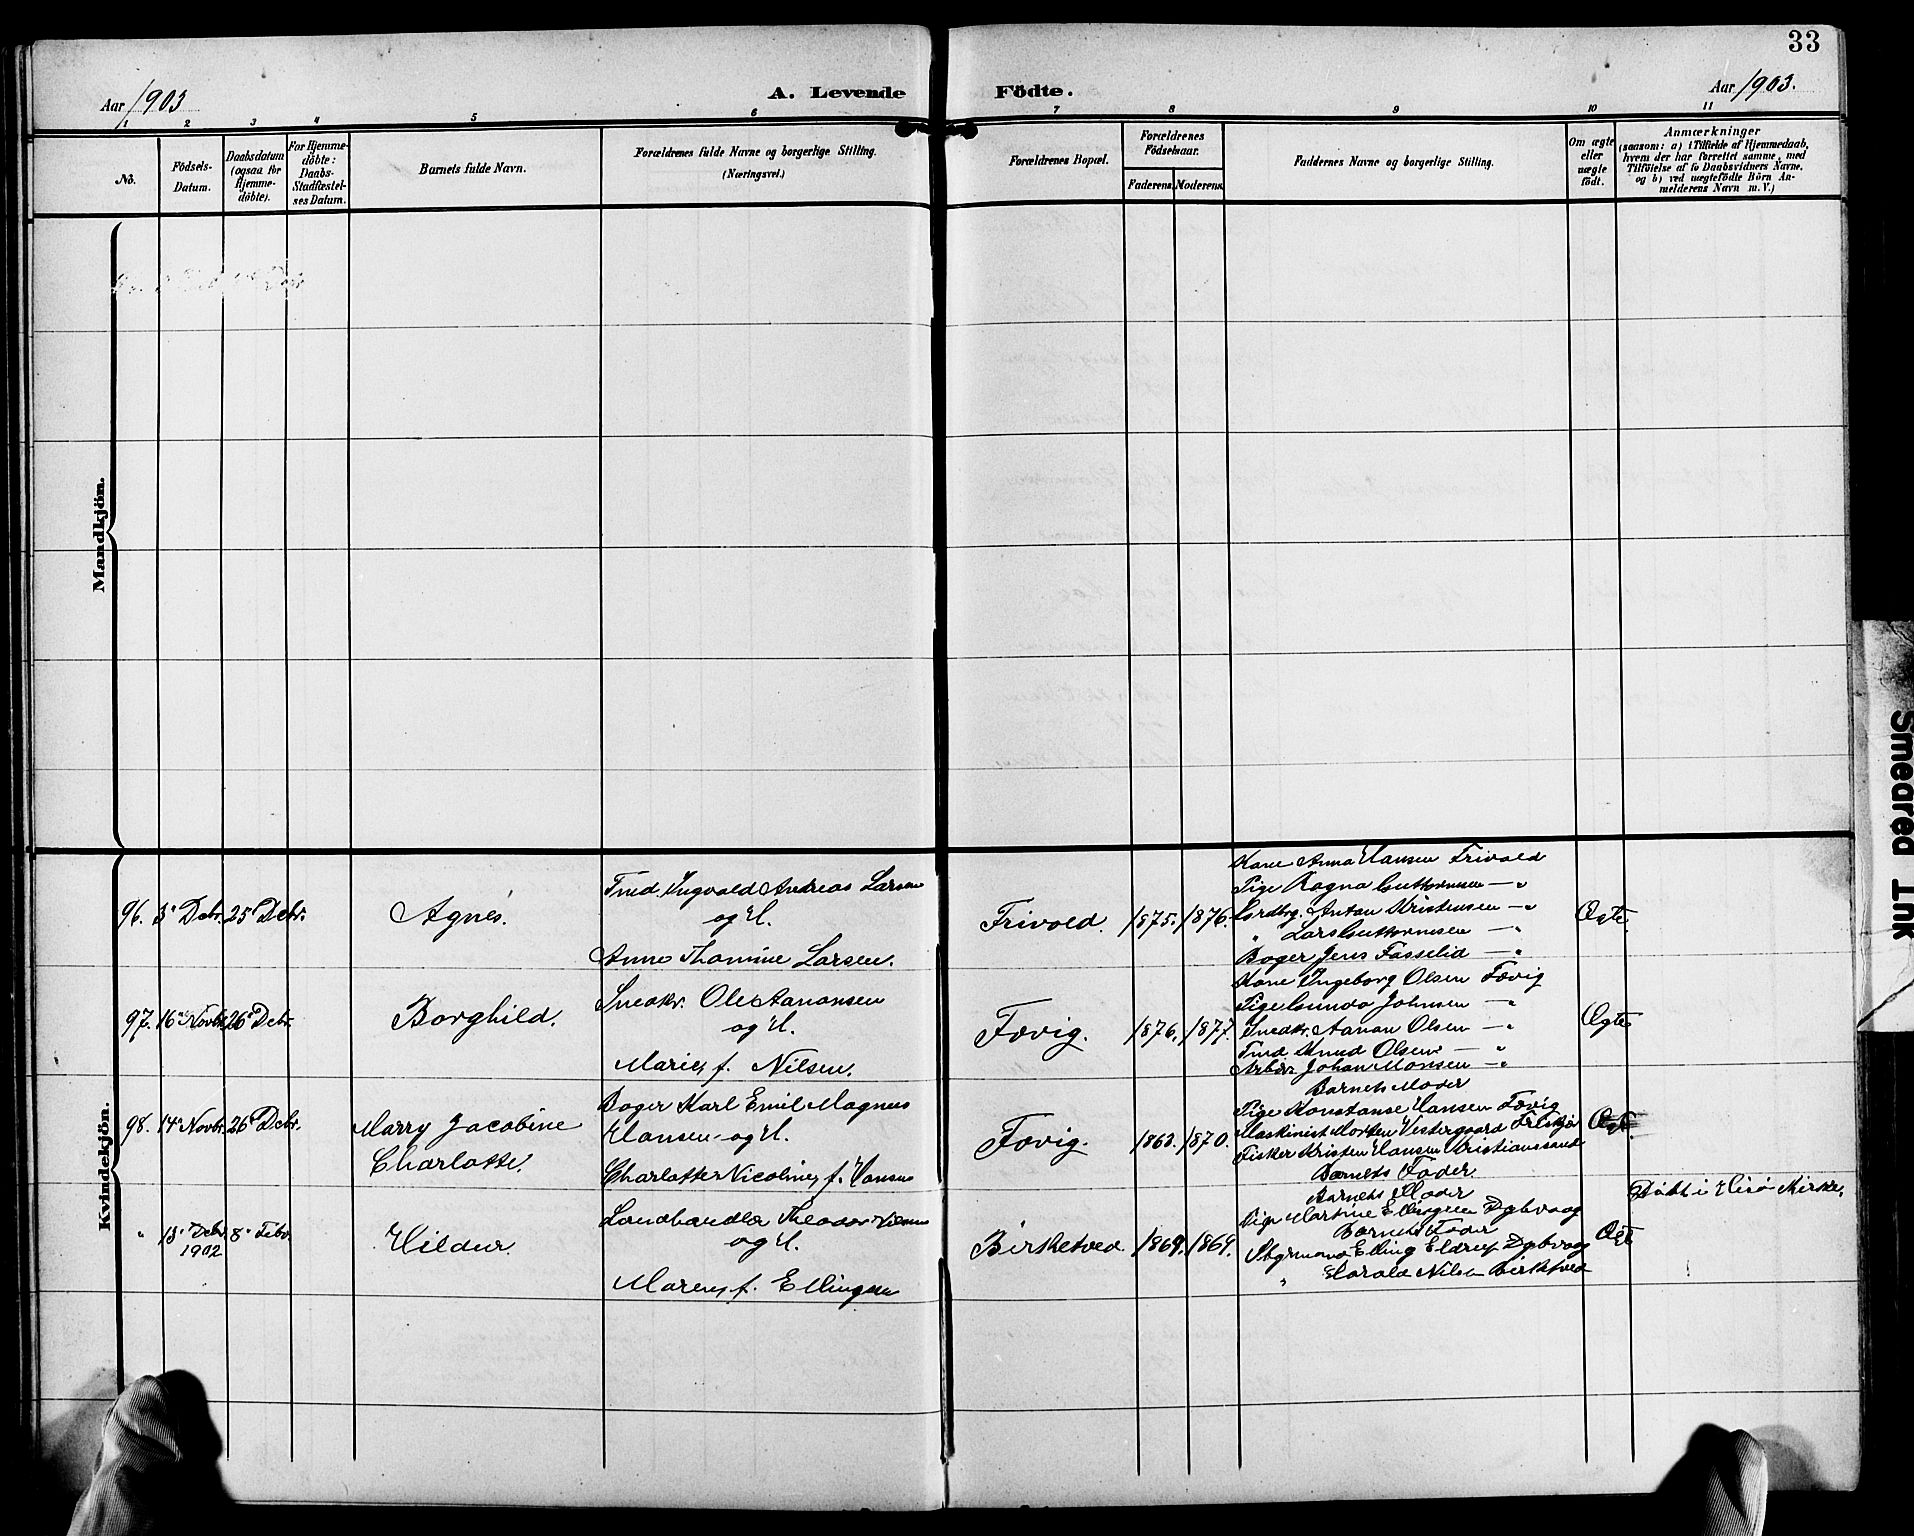 33
Aar 1903
A. Levende Födte.
Aar 1903.
1 2 3 4 5 6 7 8 9 10 11
No.
Födsels-Datum.
Daabsdatum (ogsaa for Hjemme-döbte).
For Hjemme-döbte: Daabs-Stadfæstel-ses Datum.
Barnets fulde Navn.
Forældrenes fulde Navne og borgerlige Stilling.
(Næringsvei.)
Forældrenes Bopæl.
Forældrenes Födselsaar.
Faderens. Moderens.
Faddernes Navne og borgerlige Stilling.
Om ægte eller uægte födt.
Anmærkninger
(saasom: a) i Tilfælde af Hjemmedaab, hvem der har forrettet samme, med Tilföielse af to Daabsvidners Navne, og b) ved uægtefödte Börn An-melderens Navn m. V.)
Mandkjön.
Kvindekjön.
96. 3' Debr. 25' Debr.
Agnes.
Tmd. Ingvald Andreas Larsen
og H.
Anne Thomine Larsen.
Frivold. 1875. 1876.
Kone Anna Hansen Frivold
Pige Ragna Guttormsen — "
Gordbrg. Anton Kristensen — "
" Lars Guttormsen — "
Bager Jens Fasselid — "
Ægte
97. 16' Novbr. 26' Debr.
Borghild.
Snedkr. Ole Aanonsen
og H.
Marie f. Nilsen.
Fævig. 1876. 1877.
Kone Ingeborg Olsen Fævig
Pige Gunda Johnsen — "
Snedkr. Aanan Olsen — "
Tmd. Knud Olsen — "
Arbdr. Johan Monsen — "
Ægte
98. 14' Novbr. 26' Debr.
Marry Jacobine
Charlotte.
Bager Karl Emil Magnus
Hansen og H.
Charlotte Nicoline f. Hansen
Fævig. 1863. 1870.
Barnets Moder
Pige Konstanse Hansen Fævig
Maskinist Morten Vestergaard
Fisker Kristen Hansen Kristianssand
Barnets Fader.
Ægte
" 13' Debr. 1902 8' Febr.
Hildur.
Landhandler Theodor Nilsen
og H.
Maren f. Ellingsen
Birketved 1869. 1869.
Barnets Moder
Pige Martine Ellingsen Dybvaag
Barnets Fader
Styrmand Elling Eldrup Dybvaag
" Harald Nilsen Birketved
Ægte
Döbt i Hisö Kirke.
Smeared Ink